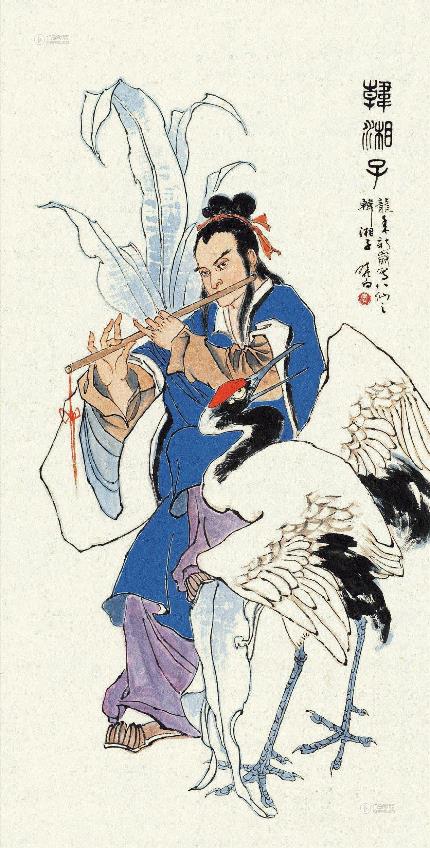 韓湘子
龍年新歲寫八仙之
韓湘子